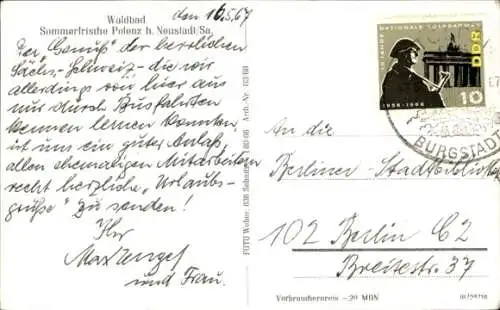 Waldbad
Sommerfrische Polenz b. Neustadt/Sa.
den 16.5.67
Der „Genuß" der herrlichen
Sächs. Schweiz - die wir
allerdings von hier aus
nur durch Busfahrten
kennen lernen konnten,
ist uns ein guter Anlaß,
allen ehemaligen Mitarbeitern
recht herzliche „Urlaubs-
grüße" zu senden!
Ihr
und Frau.
FOTO Weber, 836 Sebnitz
Arch.-Nr.
10 JAHRE NATIONALE VOLKSARMEE
DDR
1956-1966
10
BURGSTÄD
An die
Berliner
102 Berlin C2
Breitestr. 37
Verbraucherpreis -20 MDN